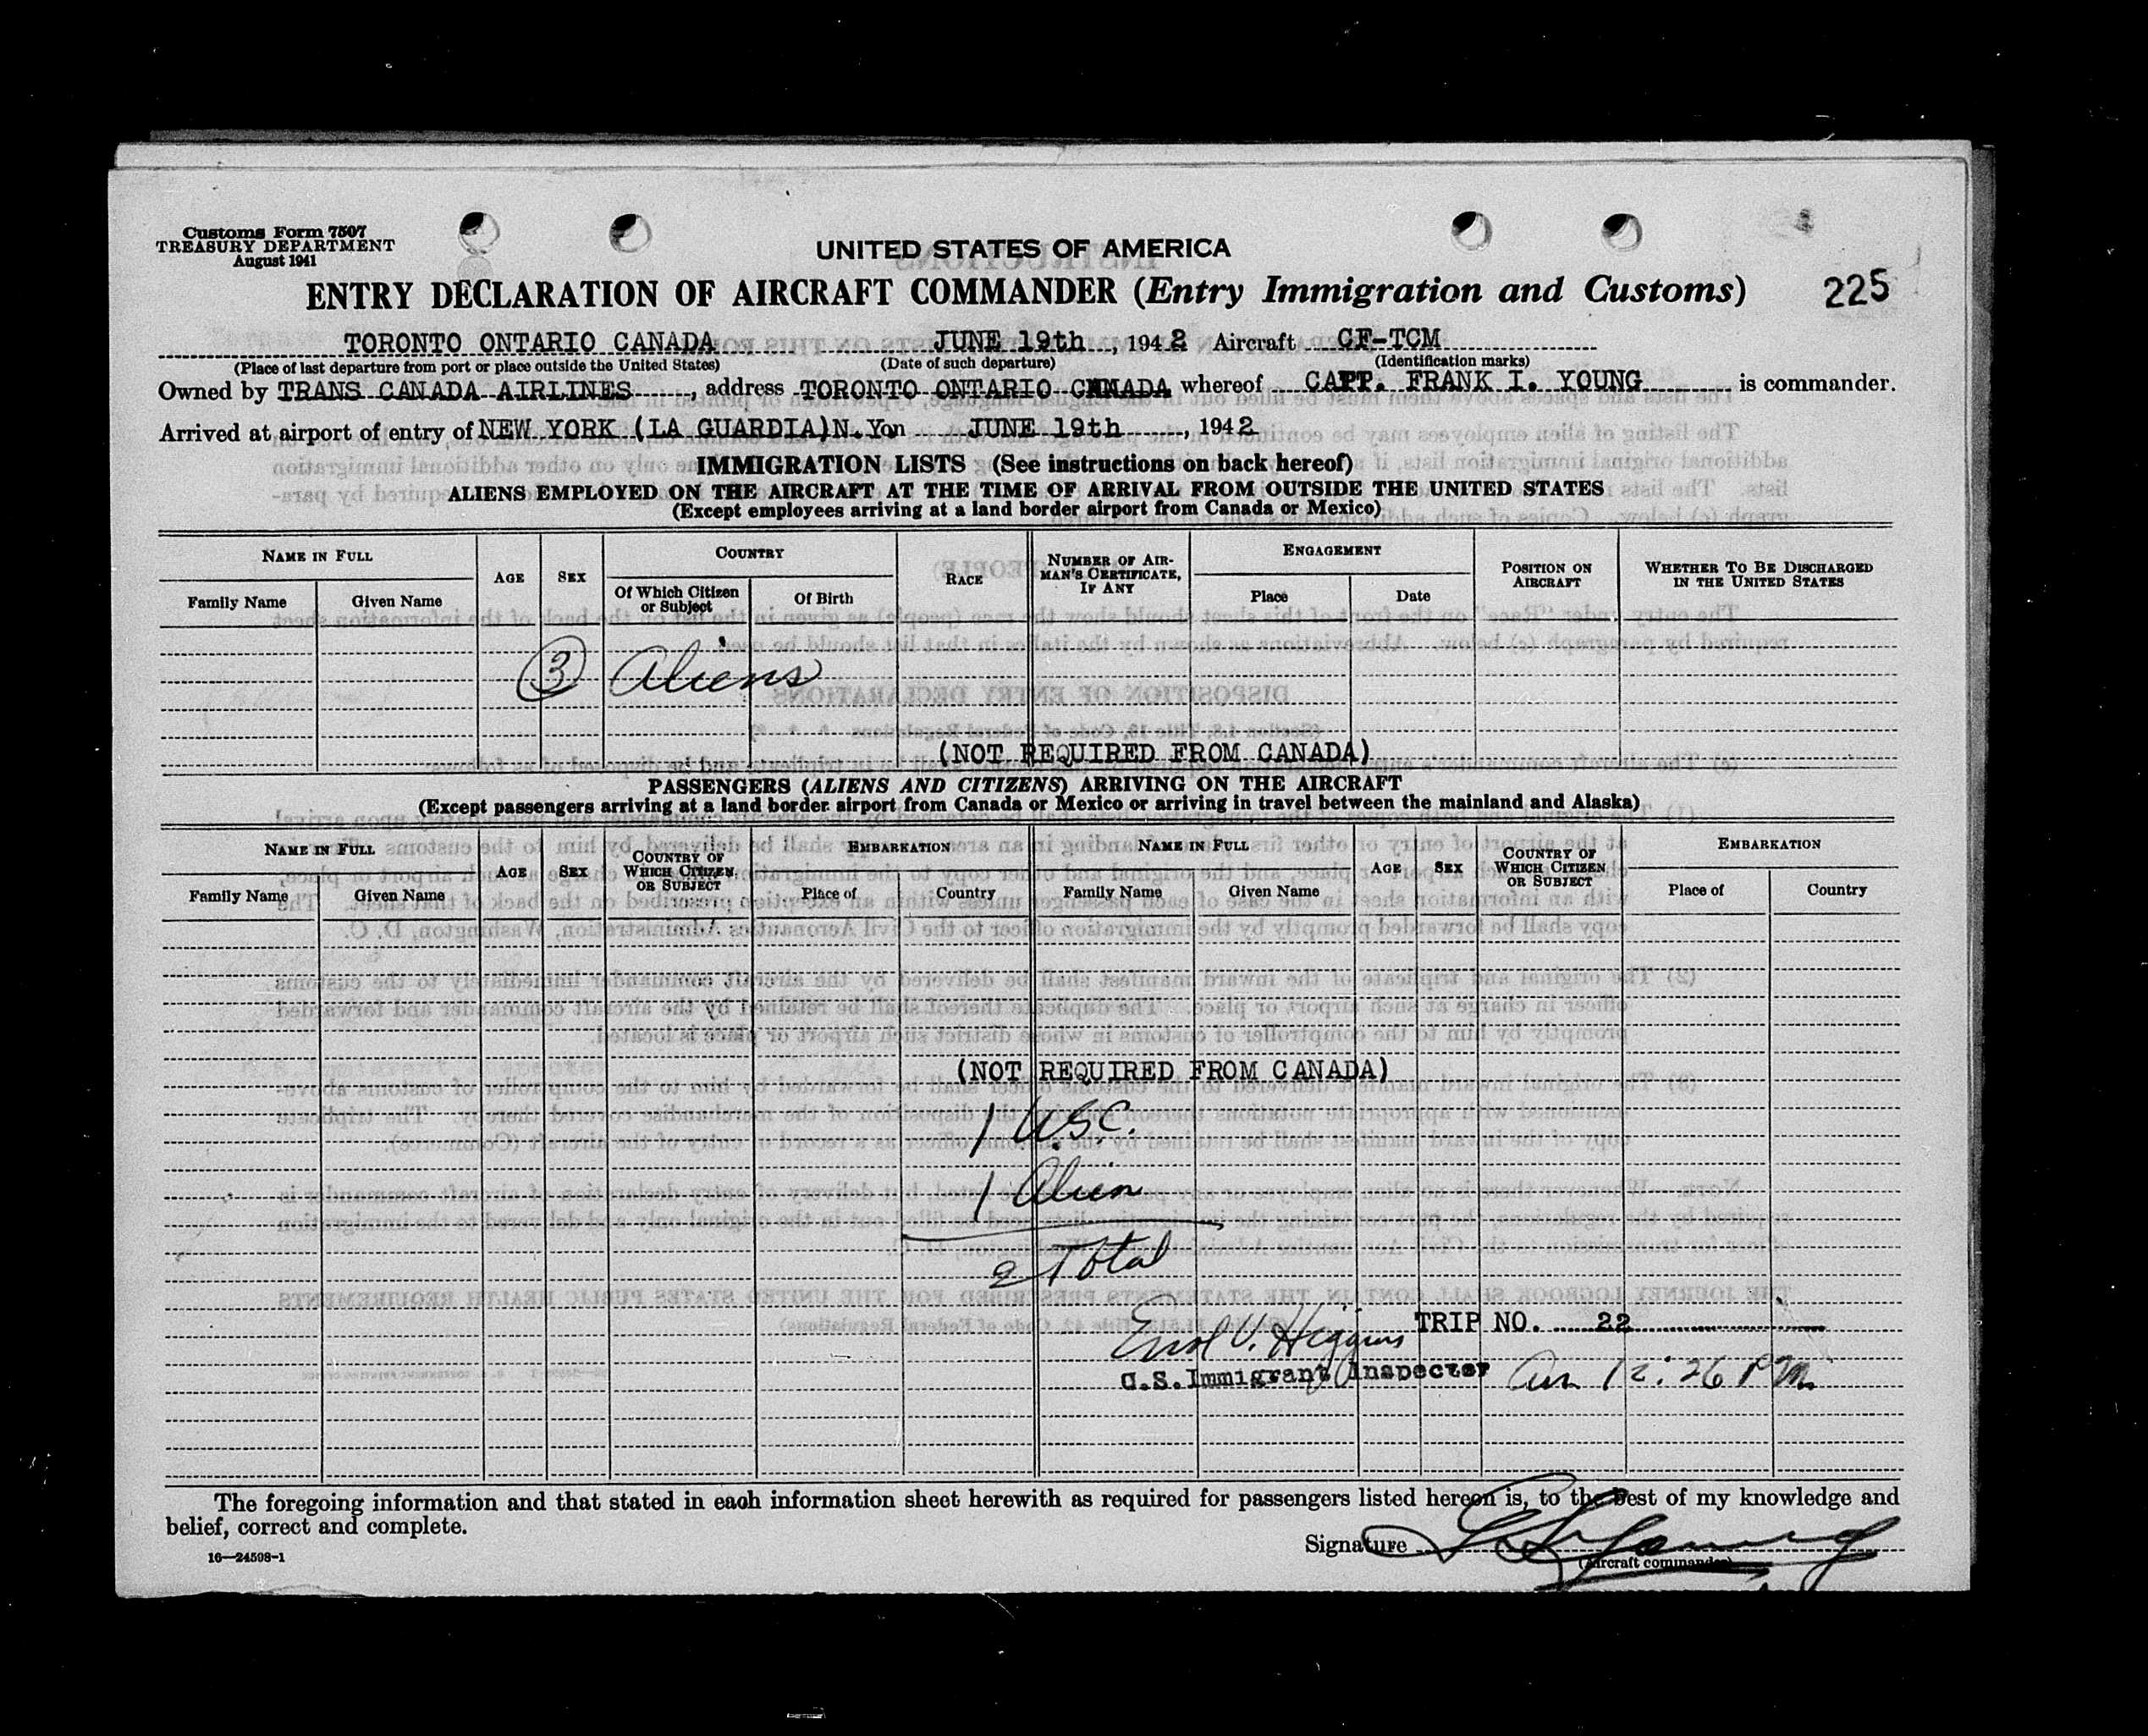 Customs Form 7507
TREASURY DEPARTMENT
August 1941
UNITED STATES OF AMERICA
ENTRY DECLARATION OF AIRCRAFT COMMANDER (Entry Immigration and Customs)
225
TORONTO ONTARIO CANADA JUNE 19th, 1942 Aircraft CF-TCM
(Place of last departure from port or place outside the United States) (Date of such departure) (Identification marks)
Owned by TRANS CANADA AIRLINES, address TORONTO ONTARIO CANADA whereof CAPT. FRANK I. YOUNG is commander.
Arrived at airport of entry of NEW YORK (LA GUARDIA) N.Y. on JUNE 19th, 1942
IMMIGRATION LISTS (See instructions on back hereof)
ALIENS EMPLOYED ON THE AIRCRAFT AT THE TIME OF ARRIVAL FROM OUTSIDE THE UNITED STATES
(Except employees arriving at a land border airport from Canada or Mexico)
NAME IN FULL AGE SEX COUNTRY RACE NUMBER OF AIRMAN'S CERTIFICATE, IF ANY ENGAGEMENT POSITION ON AIRCRAFT WHETHER TO BE DISCHARGED IN THE UNITED STATES
Family Name Given Name Of Which Citizen or Subject Of Birth Place Date
3 Aliens
(NOT REQUIRED FROM CANADA)
PASSENGERS (ALIENS AND CITIZENS) ARRIVING ON THE AIRCRAFT
(Except passengers arriving at a land border airport from Canada or Mexico or arriving in travel between the mainland and Alaska)
NAME IN FULL AGE SEX COUNTRY OF WHICH CITIZEN OR SUBJECT EMBARKATION NAME IN FULL AGE SEX COUNTRY OF WHICH CITIZEN OR SUBJECT EMBARKATION
Family Name Given Name Place of Country Family Name Given Name Place of Country
(NOT REQUIRED FROM CANADA)
1 U.S.C.
1 Alien
2 Total
TRIP NO. 22
V. Higgins
U.S. Immigrant Inspector Arr 12:26 PM
The foregoing information and that stated in each information sheet herewith as required for passengers listed hereon is, to the best of my knowledge and
belief, correct and complete.
Signature
(Aircraft commander)
16—24598-1